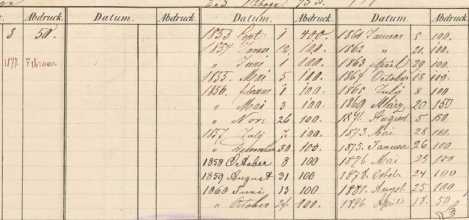 Abdruck. Datum. Abdruck. Datum. Abdruck. Datum. Abdruck.
8 50. 1853 Sept 1 400. 1861 Januar 5 100.
1854 Januar 12 100. 1862 " 21. 100.
1897 Februar " Juni 1 100 1863 April 29 100
1855. Mai 5 100. 1864 October 18 100.
1856. 1 100. 1865 July 8 100
" Mai 3 100. 1869 März 20 150
" Nov. 26 100. 1871 August 5 150.
1857 July 7 100. 1873. Mai 28 150
" 30 100. 1875. Januar 26 100.
1858 October 8 100 1876 Mai 23 150
1859 August 31 100 1878 24 100
1860 Juni 13 100 1881 August 25 100
" October 24 100. 1896 April 18. 50